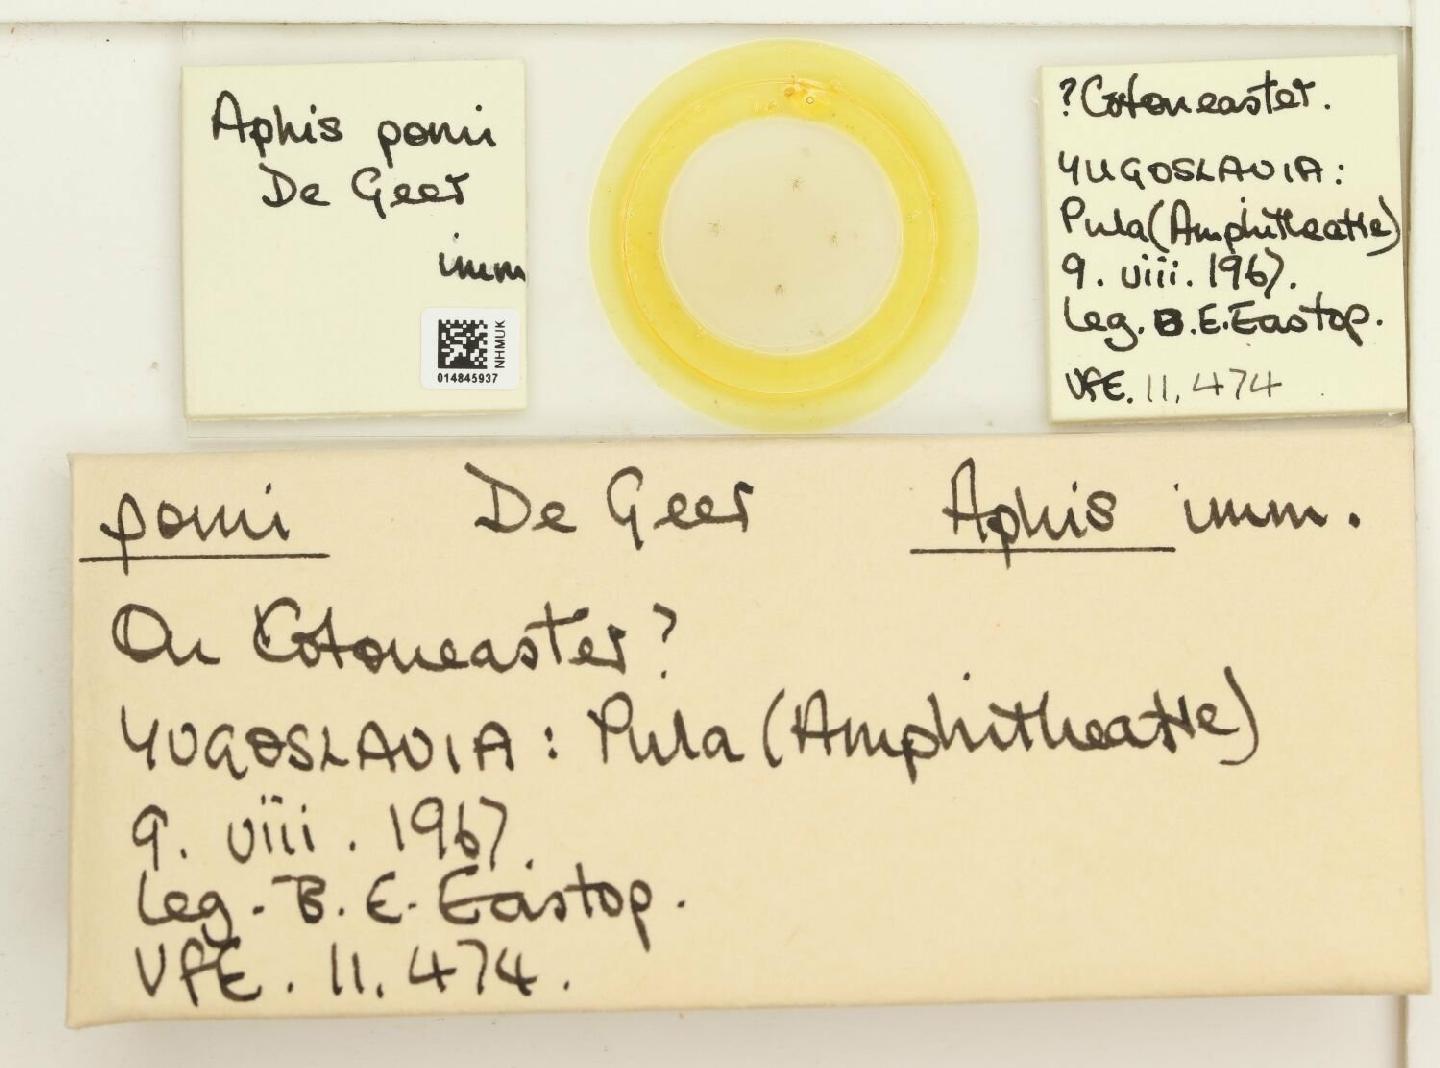 Aphis pomi
De Geer
imm
NHMUK
014845937
?Cotoneaster.
YUGOSLAVIA:
Pula (Amphitheatre)
9. viii. 1967.
Leg. B.E. Eastop.
VFE. 11,474
pomi De Geer Aphis imm.
On Cotoneaster?
YUGOSLAVIA: Pula (Amphitheatre)
9. viii. 1967.
Leg. B. E. Eastop.
VFE. 11,474.